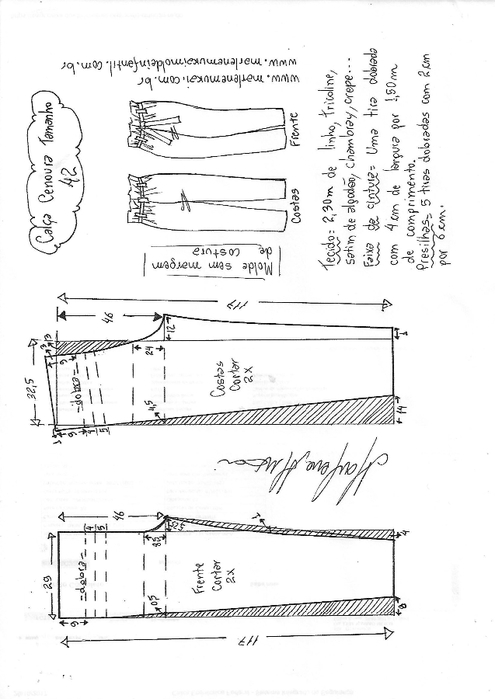 Calça Cenoura Tamanho
42
www.marlenemukai.com.br
www.marlenemukaimoldeinfantil.com.br
Frente
Costas
Molde sem margem
de costura
Tecido: 2,30m de linho, tricoline,
satim de algodão, chambray, crepe...
Faixa de cintura= Uma tira dobrada
com 4 cm de largura por 1,80m
de comprimento.
Presilhas= 5 tiras dobradas com 2cm
por 6cm.
117
46
12
32,5
3
9
-dobra-
4
5
24
4,5
Costas
Cortar
2x
1
14
9
46
29
9
-dobra-
4
5
0,5
Frente
Cortar
2x
1
4
8
117